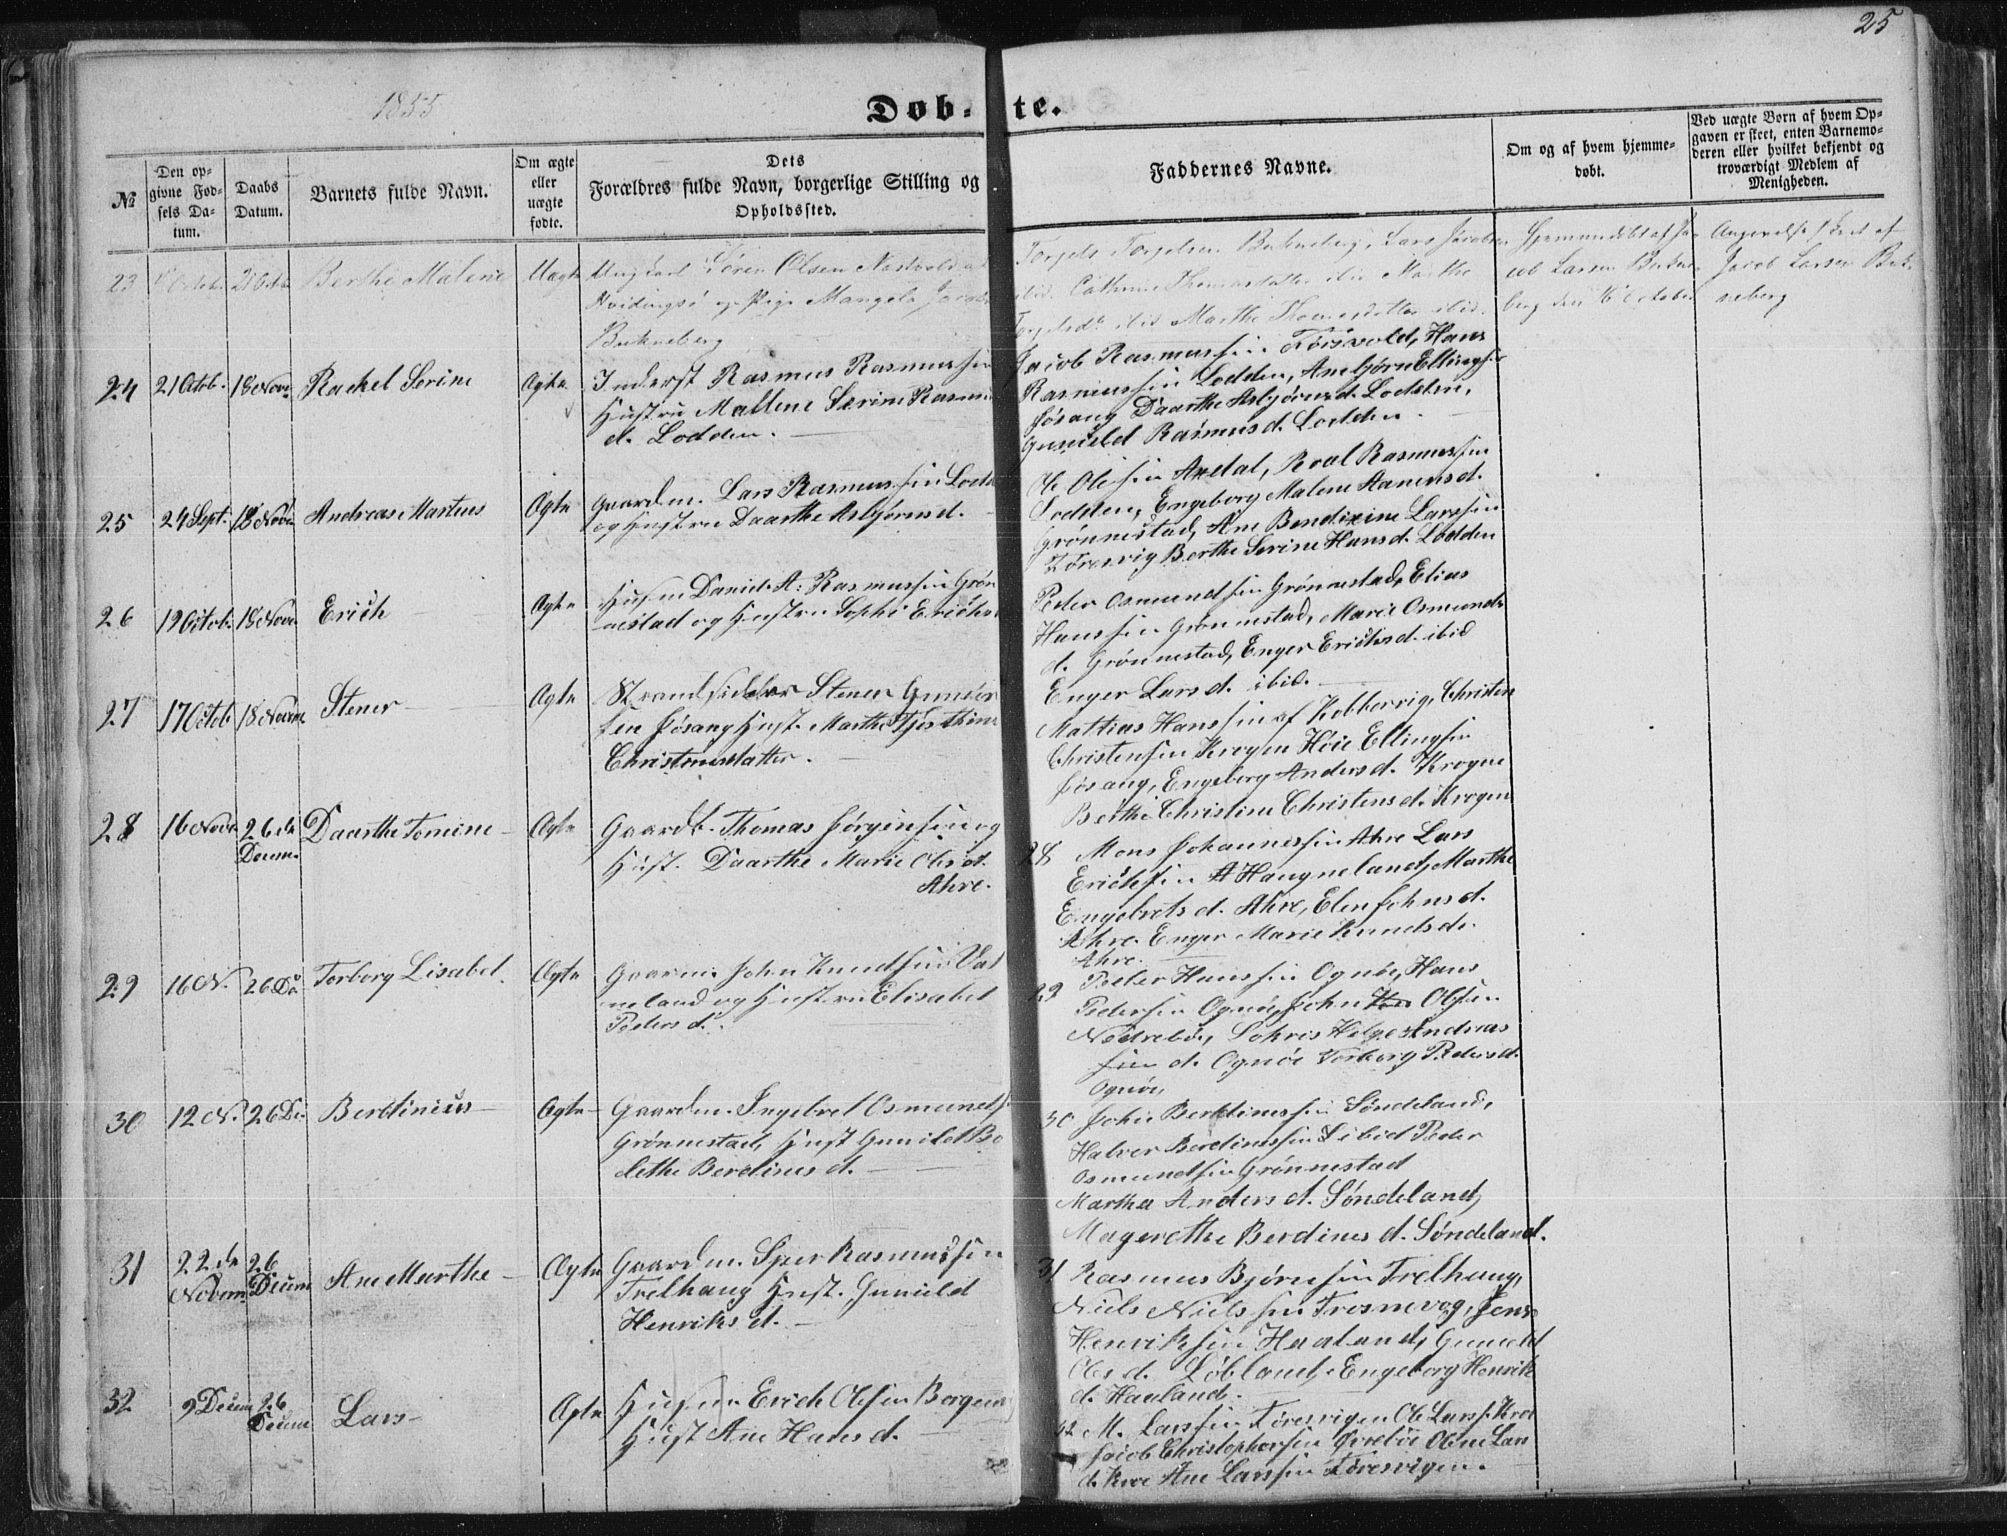 25
1855
Døb-te.
№
Den opgivne Fødsels Datum.
Daabs Datum.
Barnets fulde Navn.
Om ægte eller uægte fødte.
Dets
Forældres fulde Navn, borgerlige Stilling og
Opholdssted.
Faddernes Navne.
Om og af hvem hjemmedøbt.
Ved uægte Børn af hvem Opgaven er skeet, enten Barnemoderen eller hvilket bekjendt og troværdigt Medlem af Menigheden.
23
Berthe Malene
Uægte
Ungkarl Søren Olsen
Hvidingsø og Pige
Bukneberg
Torgels Torgelsen Bukneberg, Lars Jacobsen
ibid. Cathrine Thomasdatter ibid Marthe
ibid Marthe Thomasdatter ibid.
Hjemmedøbt af Jacob Larsen Bukneberg den 16 October
Angivelse skeet af
Jacob Larsen Bukneberg
24
21 Octob.
18 Nove
Rachel Serine
Ægte
Inderst Rasmus Rasmussen
Hustru Mallene Serine Rasmus
d. Lodden.
Jacob Rasmussen Førsvold, Hans
Rasmussen Lodden, Ambjørn Ellingsen
Jøsang Daarthe Asbjørnsd. Lodden,
Gunild Rasmusd. Lodden
25
24 Sept.
18 Nove
Andreas Martius
Ægte
Gaardm. Lars Rasmussen Lodd
og Hustru Daarthe Asbjørnsd.
Ole Olesen Axdal, Roal Rasmussen
Lodden, Engeborg Malene Aanensd.
Grønnestad, Ane Bendixine Larssen
Toresvig Berthe Serine Hansd. Lodden
26
19 Octob.
18 Nove
Erich
Ægte
Husm Daniel A: Rasmussen Grøn
nestad og Hustru Sophi Erichs
Peder Osmundsen Grønnestad, Elias
Hanssen Grønnestad, Marie Osmunds
d. Grønnestad, Enger Erichsd. ibid
Enger Larsd. ibid.
27
17 Octob
18 Novem
Stener
Ægte
Strandsidder Stener Gunder
sen Jøsang Hust. Marthe
Christensdatter.
Mathias Hanssen af Kobbervig, Christen
Christensen Krogen Høie Ellingsen
Jøsang, Engeborg Andersd. Krogne
Berthe Christine Christensd. Krogen
28
16 Nove
26 de
Decem.
Daarthe Tomine
Ægte
Gaardb. Thomas Jørgensen og
Hust. Daarthe Marie Olesd.
Ahre.
28 Mons Johannessen Ahre Lars
Erichsen Haugneland, Marthe
Engebretsd. Ahre, Elen Johnsd.
Ahre. Enger Marie Knudsd.
Ahre.
29
16 N.
26 De
Torborg Lisabet.
Ægte
Gaarm. John Knudsen Vat
neland og Hustru Elisabet
Pedersd.
29 Peder Hanssen Ognøe, Hans
Pedersen Ognøe, John Olsen
Nedrebøe, Helge Andreas
sen d. Ognøe Torborg Pedersd.
Ognøe,
30
12 N.
26 De
Berdinius
Ægte
Gaardm. Ingebret Osmunds
Grønnestad, Hust Gunild Bo
lethe Berdinesd.
30 John Berdinessen Søndeland,
Halver Berdinessen ibid Peder
Osmundsen Grønnestad
Martha Andersd. Søndeland,
Magerethe Berdinesd. Søndeland.
31
22 de
Novem
26
Decem
Ane Marthe
Ægte
Gaardm. Sjur Rasmussen
Trelhaug Hust. Gunild
Henriksd.
31 Rasmus Bjørnsen Trelhaug,
Niels Nielssen Trosnevog, Jens
Henriksen Haaland, Gunild
Olesd. Løbland, Engeborg Henrik
d. Hauland.
32
9 Decem
26
Decem
Lars
Ægte
Husm Erich Olesen Borgen
Hust Ane Hansd.
32 M. Larssen Toresvigen Ole Larss. Kroe
Jacob Christophersen Øvrebøe Oline Lars
d. Kroe Ane Larssen Toresvigen.